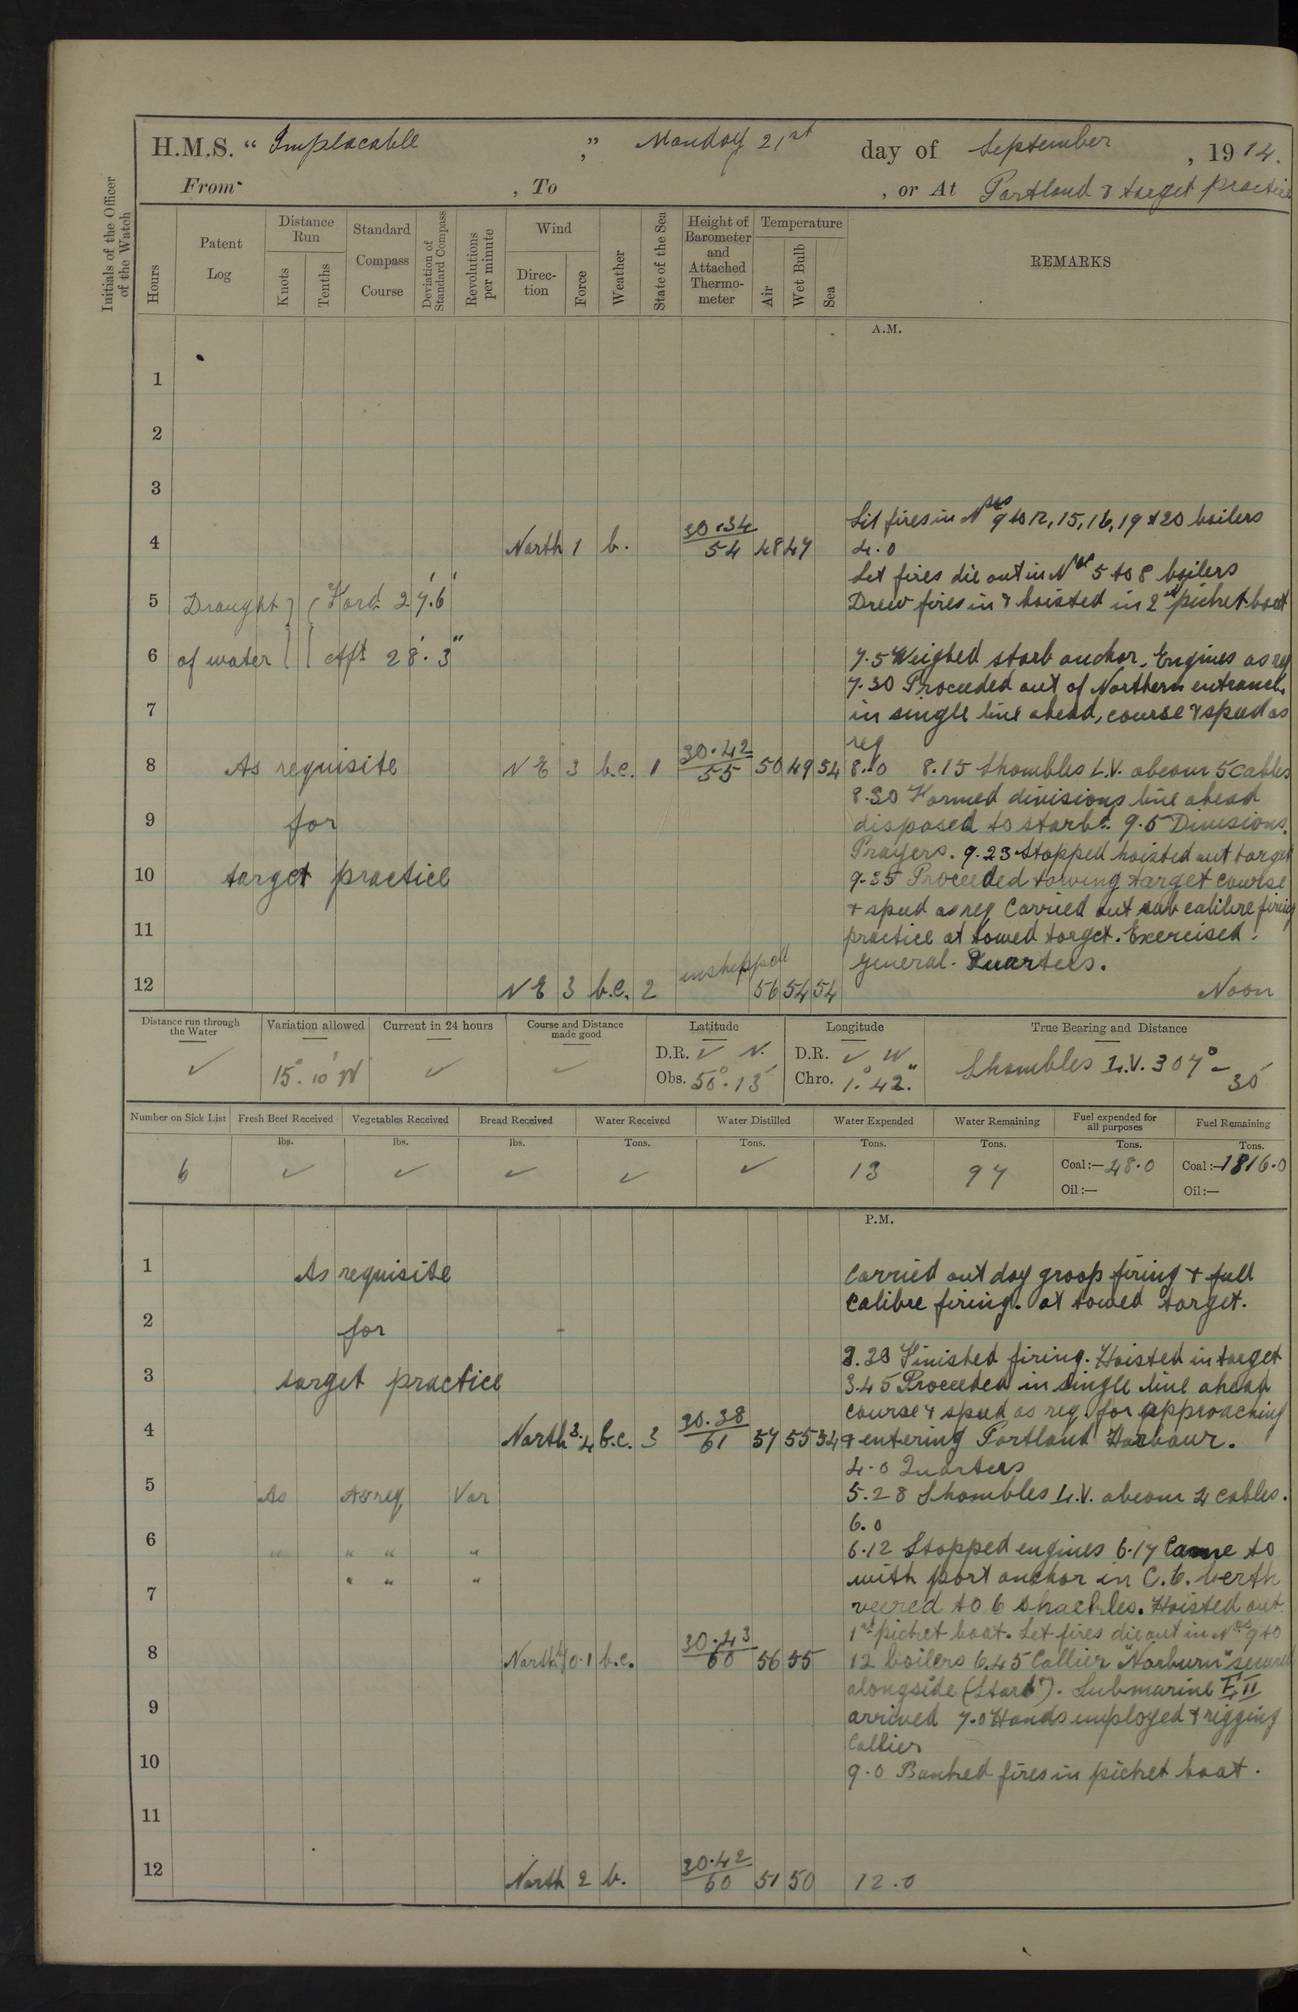 H.M.S. " Implacable ", Monday 21st day of September, 1914.
From , To , or At Portland & target practice
Initials of the Officer of the Watch
Hours
Patent Log
Distance Run
Knots
Tenths
Standard Compass Course
Deviation of Standard Compass
Revolutions per minute
Wind
Direction
Force
Weather
State of the Sea
Height of Barometer and Attached Thermometer
Temperature
Air
Wet Bulb
Sea
REMARKS
A.M.
1
2
3
Lit fires in Nos 9 to 12, 15, 16, 19 & 20 boilers
4 North 1 b. 30.34 54 48 47 4.0
Let fires die out in Nos 5 to 8 boilers
5 Draught Ford 27'.6" Drew fires in & hoisted in 2nd picket boat
6 of water Aft 28'.3" 7.5 Weighed starb anchor. Engines as req
7.30 Proceeded out of Northern entrance
7 in single line ahead, course & speed as
req
8 As requisite NE 3 b.c. 1 30.42 55 50 49 54 8.0 8.15 Shambles L.V. abeam 5 cables
8.30 Formed divisions line ahead
9 for disposed to starbd. 9.5 Divisions.
Prayers. 9.23 Stopped hoisted out target
10 target practice 9.35 Proceeded towing target course
& speed as req Carried out sub calibre firing
11 practice at towed target. Exercised
General Quarters.
12 NE 3 b.c. 2 unshipped 56 54 54 Noon
Distance run through the Water
Variation allowed
Current in 24 hours
Course and Distance made good
Latitude
Longitude
True Bearing and Distance
✓ 15° 10' W ✓ ✓ D.R. ✓ N. D.R. ✓ W Shambles L.V. 307° - 35'
Obs. 50° 13' Chro. 1° 42'
Number on Sick List
Fresh Beef Received
Vegetables Received
Bread Received
Water Received
Water Distilled
Water Expended
Water Remaining
Fuel expended for all purposes
Fuel Remaining
lbs. lbs. lbs. Tons. Tons. Tons. Tons. Tons. Tons.
6 ✓ ✓ ✓ ✓ ✓ 13 97 Coal:— 48.0 Coal:— 1816.0
Oil:— Oil:—
P.M.
1 As requisite Carried out day groop firing & full
calibre firing. at towed target.
2 for
3.23 Finished firing. Hoisted in target
3 target practice 3.45 Proceeded in single line ahead
course & speed as req. for approaching
4 North 3.4 b.c. 3 30.38 61 57 55 54 & entering Portland Harbour.
4.0 Quarters
5 As As req Var 5.28 Shambles L.V. abeam 4 cables.
6.0
6 " " " " 6.12 Stopped engines 6.17 Came to
7 " " " with port anchor in C.6. berth
veered to 6 shackles. Hoisted out
1st picket boat. Let fires die out in Nos 9 to
8 North'ly 0.1 b.c. 30.43 60 56 55 12 boilers 6.45 Collier "Norburn" secured
alongside (Starbd). Submarine E II
9 arrived 7.0 Hands employed & rigging
Collier
10 9.0 Banked fires in picket boat.
11
12 North 2 b. 30.42 60 51 50 12.0